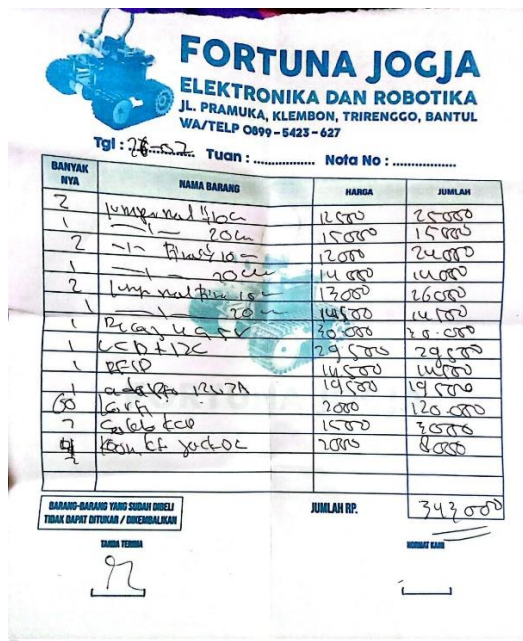 FORTUNA JOGJA
ELEKTRONIKA DAN ROBOTIKA
JL. PRAMUKA, KLEMBON, TRIRENGGO, BANTUL
WA/TELP 0899-5423-627
Tgl : 26-07 Tuan : ................ Nota No : ................
BANYAK NYA NAMA BARANG HARGA JUMLAH
2 10c 12500 25000
1 —1— 20cm 15000 15000
2 —1— 10 12000 24000
1 —1— 20cm 14000 14000
2 13000 26000
1 —1— 20 14500 14500
1 30.000
1 LCD + I2C 29500 29500
1 RFID 14500 14500
1 12V 2A 19500 19500
60 2000 120.000
2 1500 3000
4 2000 8000
BARANG-BARANG YANG SUDAH DIBELI
TIDAK DAPAT DITUKAR / DIKEMBALIKAN
JUMLAH RP. 343000
TANDA TERIMA HORMAT KAMI